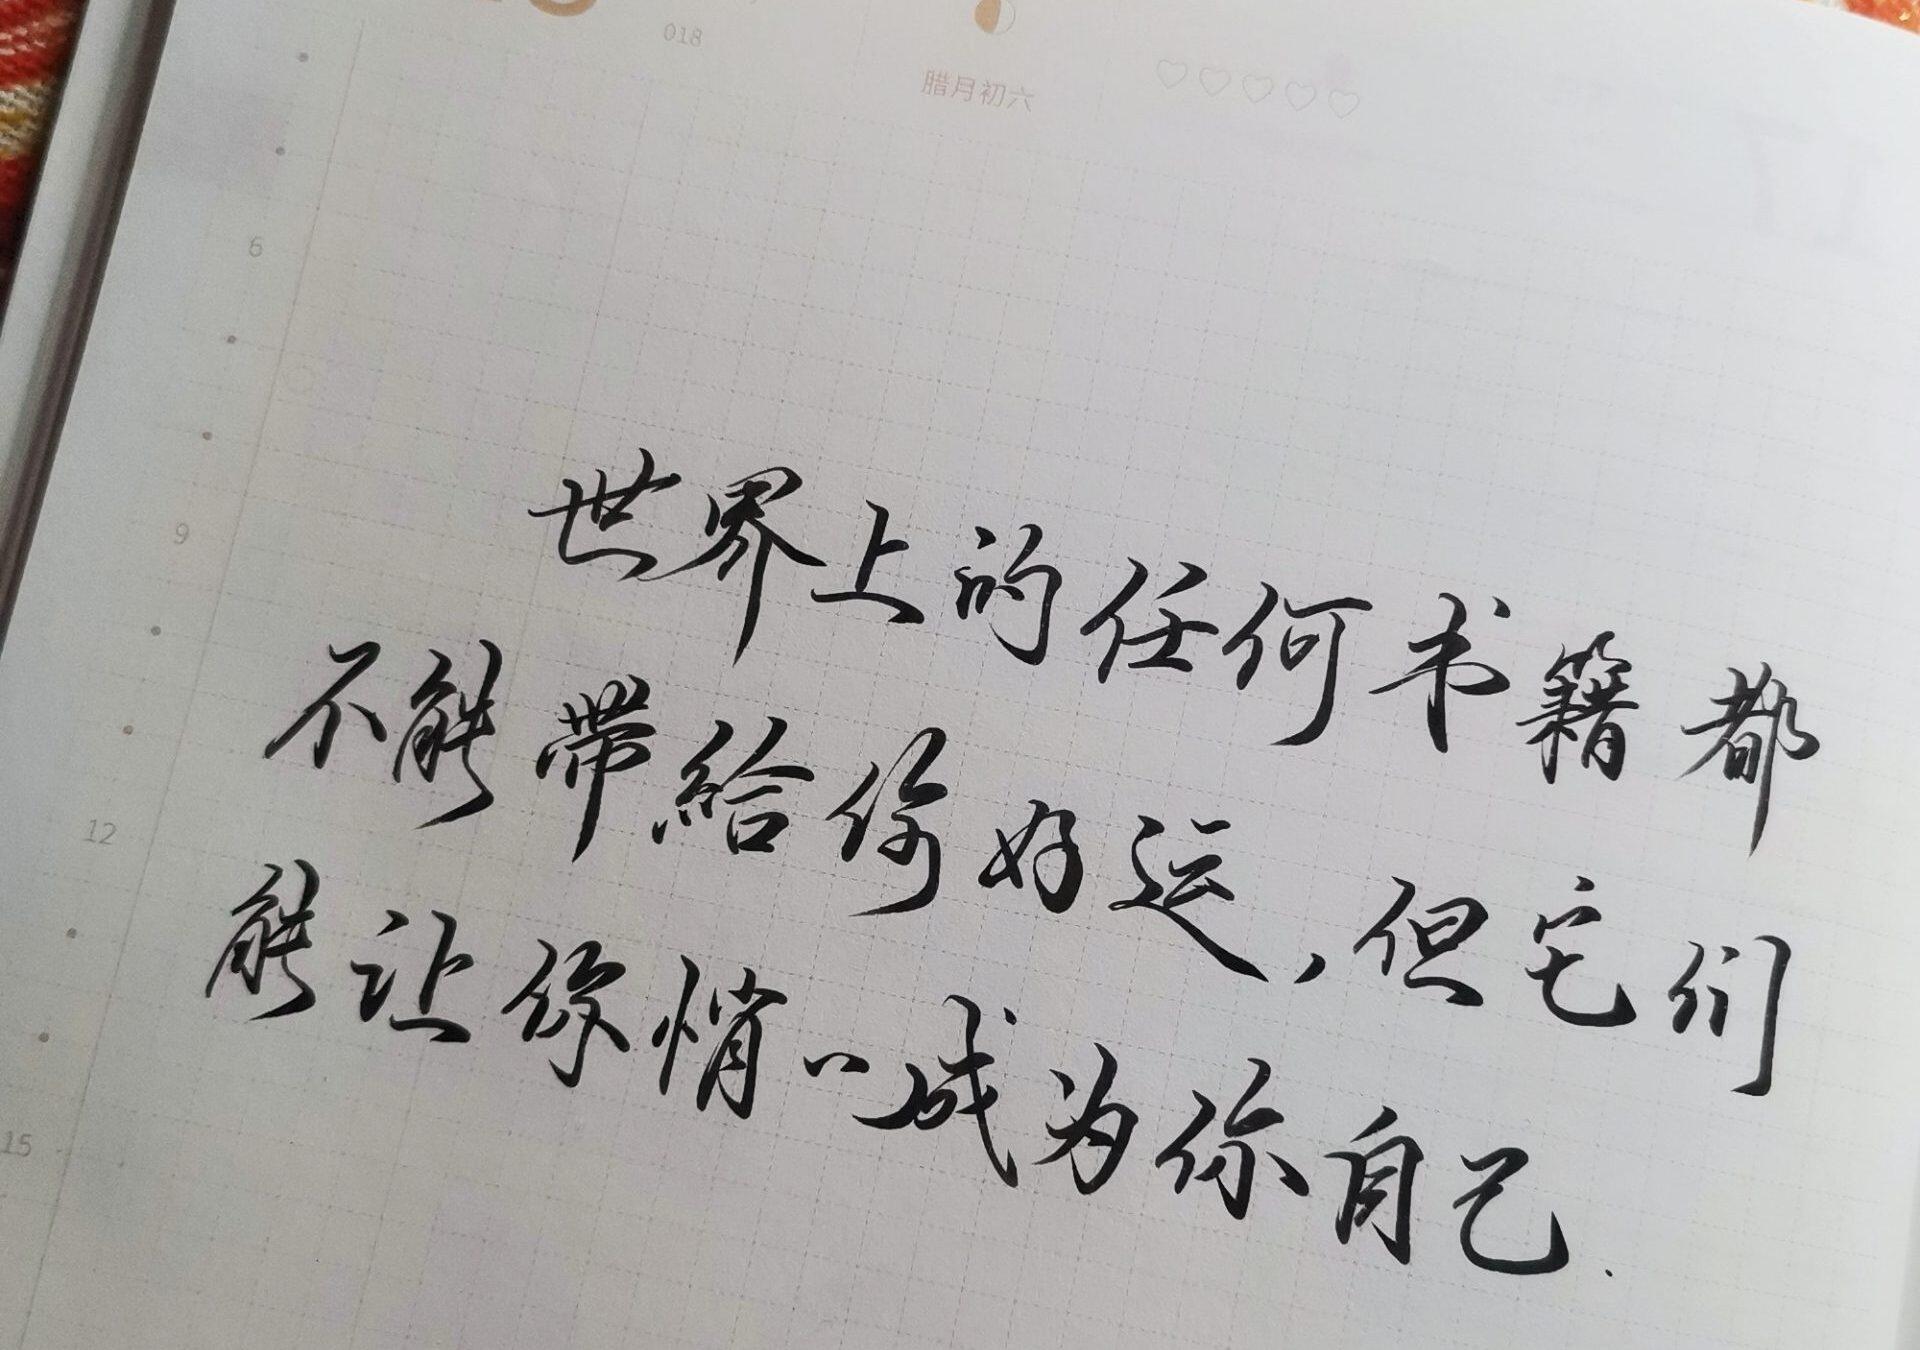 018
腊月初六
6
世界上的任何书籍都
9
不能带給你好运,但它们
12
能让你悄悄成为你自己.
15